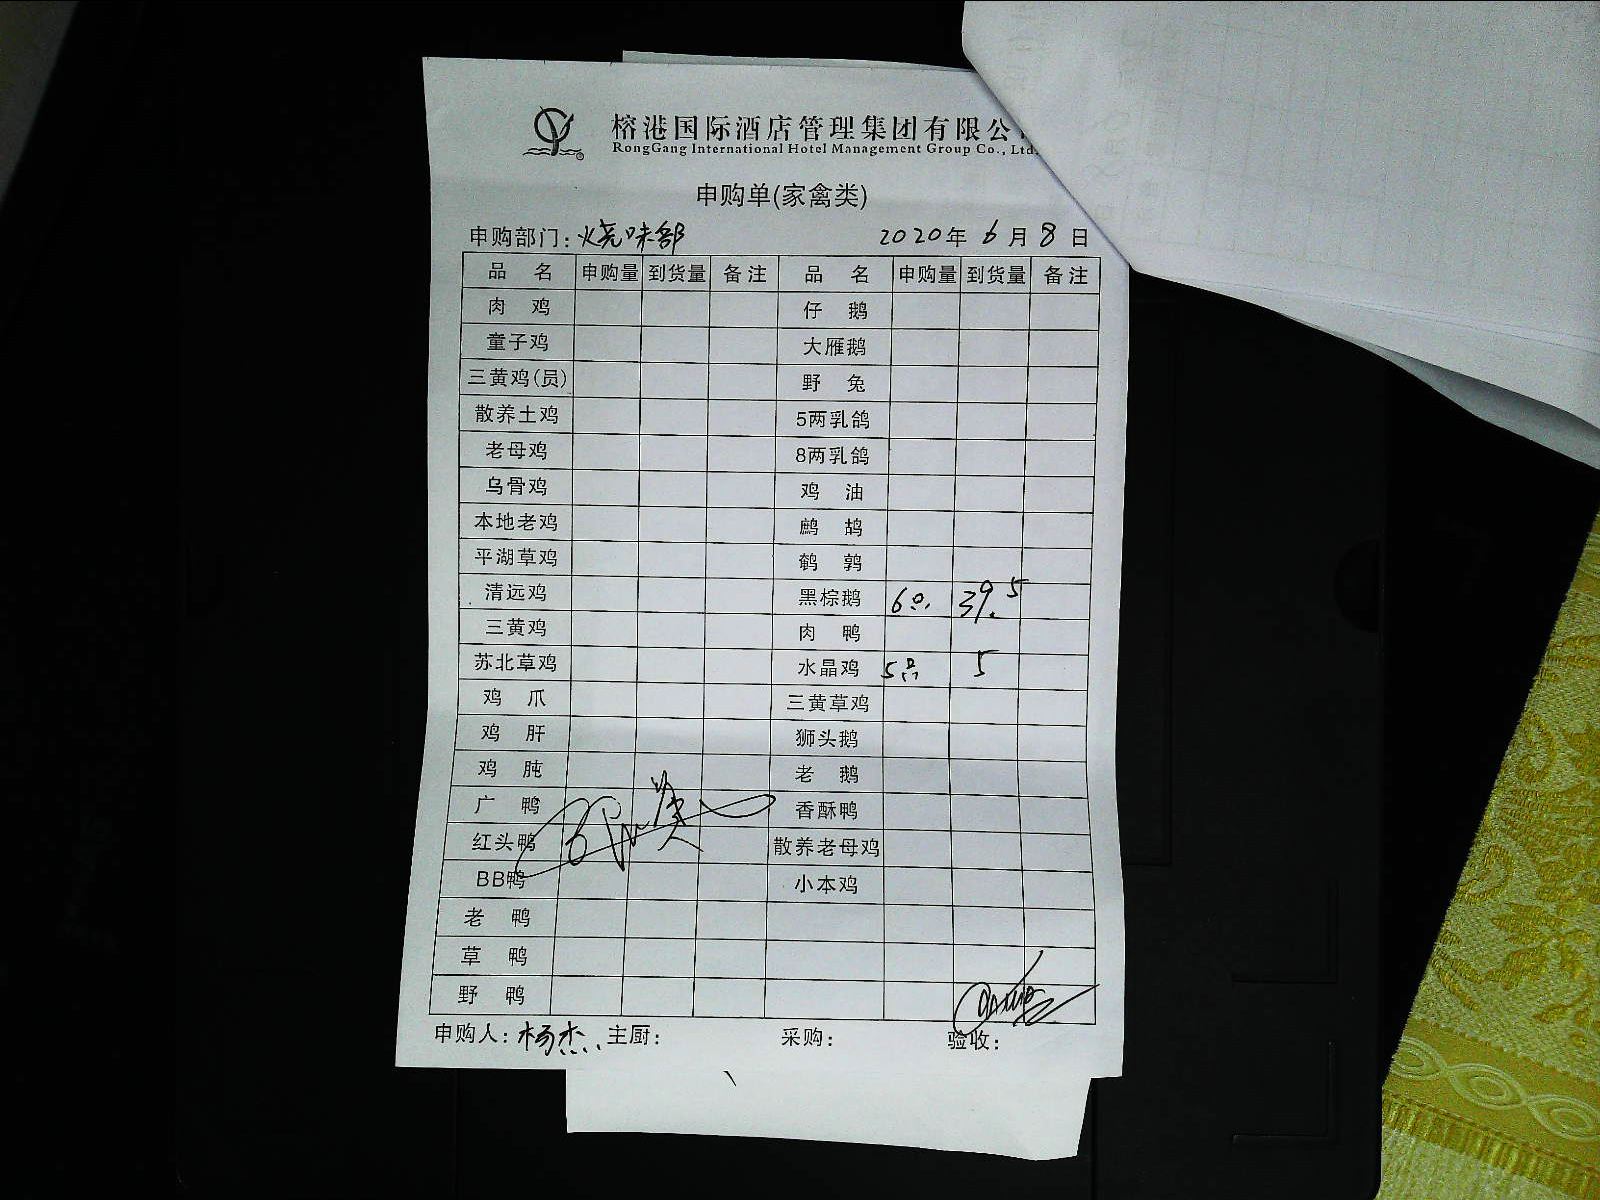 榕港国际酒店管理集团有限公
RongGang International Hotel Management Group Co., Ltd.
申购单(家禽类)
申购部门: 烧味部 2020年 6月 8日
品 名 申购量 到货量 备注 品 名 申购量 到货量 备注
肉 鸡 仔 鹅
童子鸡 大雁鹅
三黄鸡(员) 野 兔
散养土鸡 5两乳鸽
老母鸡 8两乳鸽
乌骨鸡 鸡 油
本地老鸡 鹧 鸪
平湖草鸡 鹌 鹑
清远鸡 黑棕鹅 6只 39.5
三黄鸡 肉 鸭
苏北草鸡 水晶鸡 5只 5
鸡 爪 三黄草鸡
鸡 肝 狮头鹅
鸡 肫 老 鹅
广 鸭 香酥鸭
红头鸭 散养老母鸡
BB鸭 小本鸡
老 鸭
草 鸭
野 鸭
申购人: 杨杰 主厨: 采购: 验收: